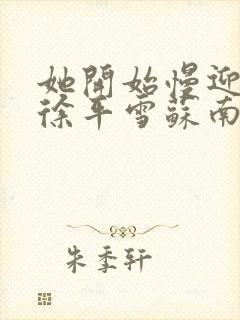 她開始慢迎
徐平雪蘇南
朱季轩